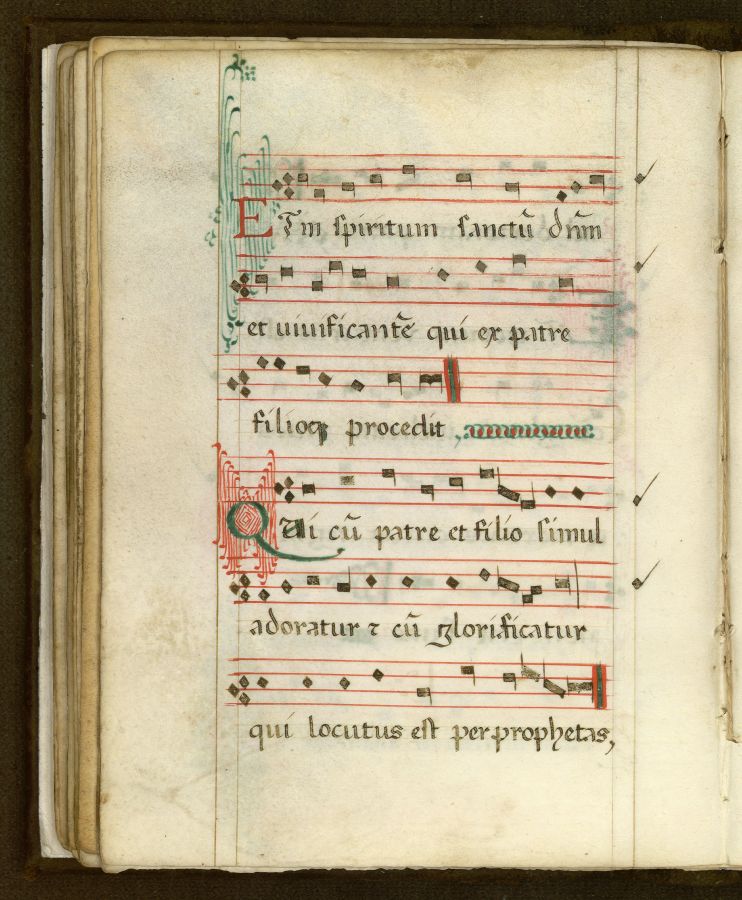 ETin spiritum sanctū dn̄m
et uiuificantē qui ex patre
filioqꝫ procedit
QVi cū patre et filio simul
adoratur ⁊ cū glorificatur
qui locutus est per prophetas,